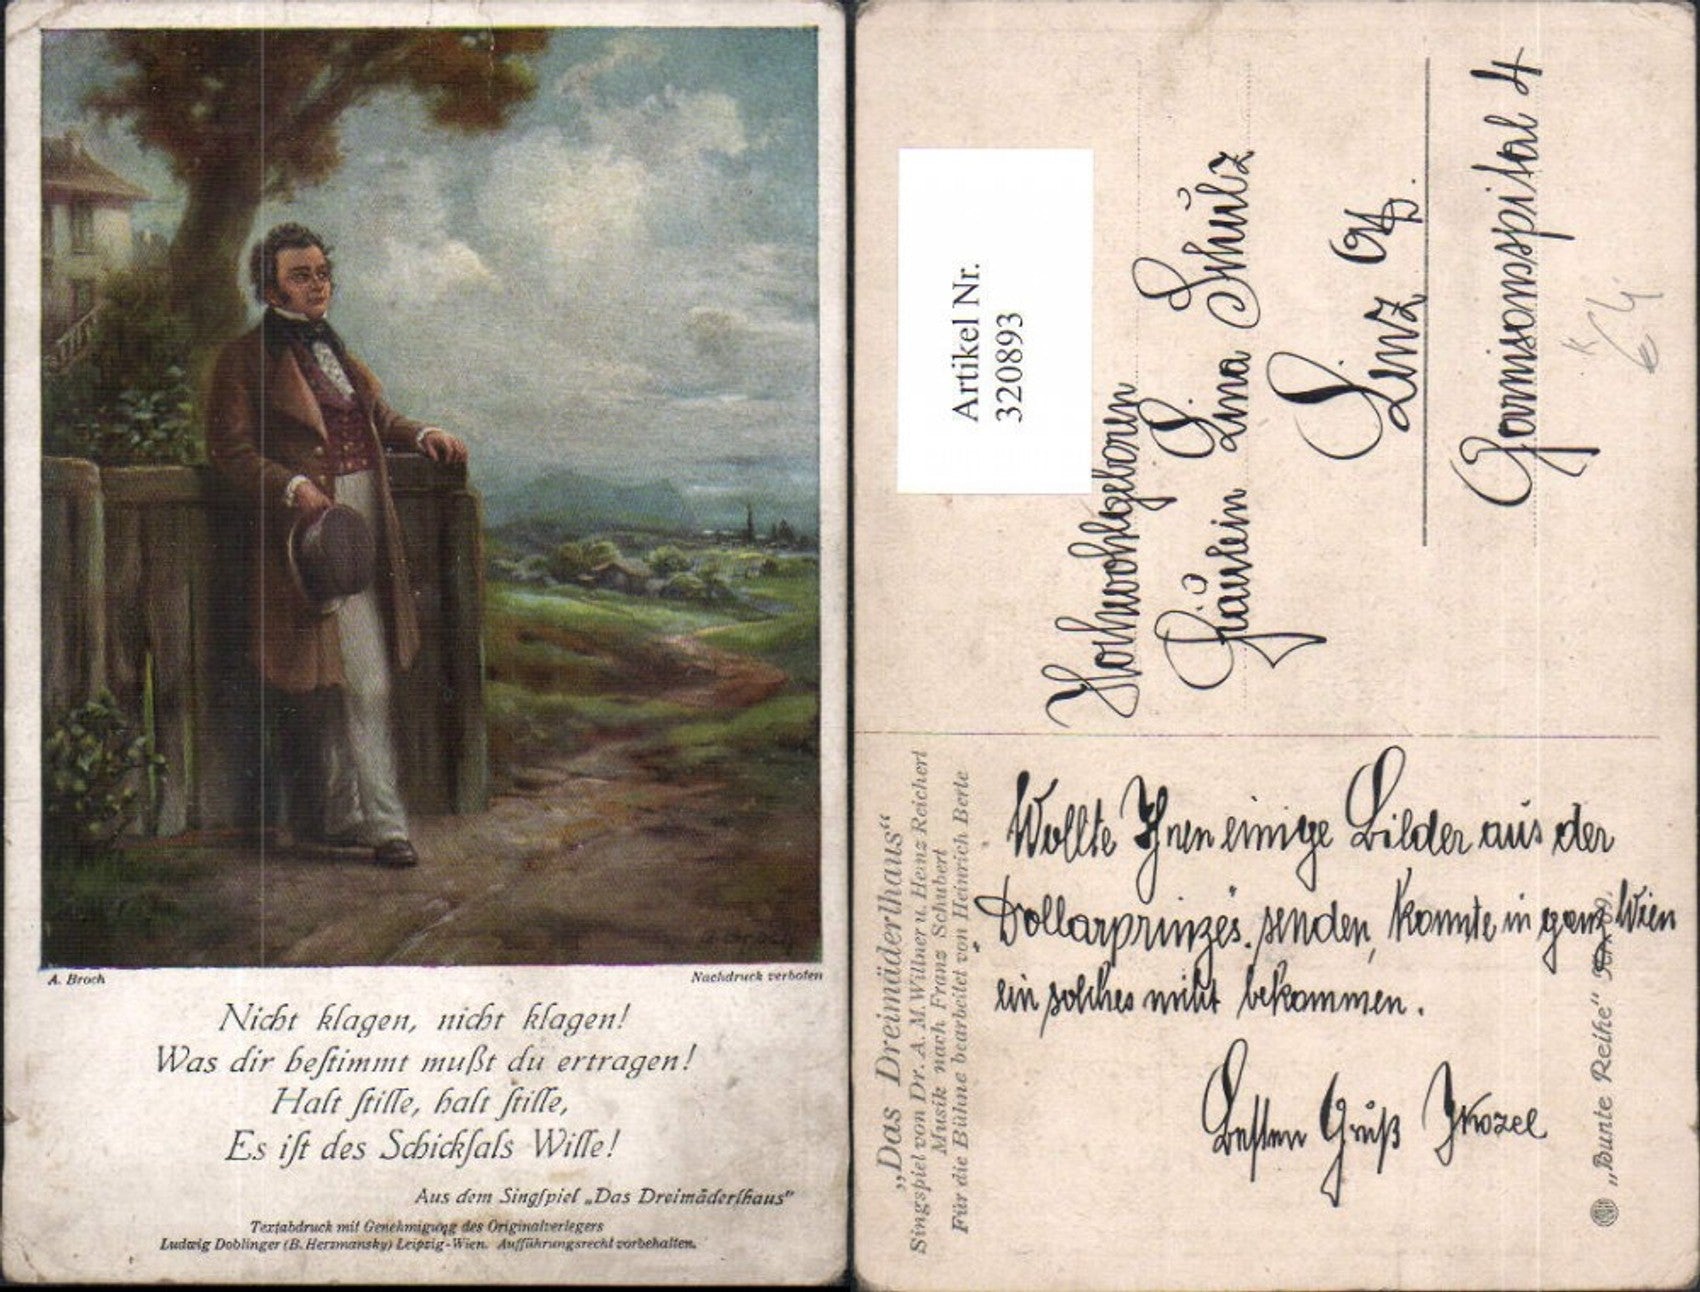 A. Broch
Nachdruck verboten
Nicht klagen, nicht klagen!
Was dir beſtimmt mußt du ertragen!
Halt ſtille, halt ſtille,
Es iſt des Schickſals Wille!
Aus dem Singſpiel „Das Dreimäderlhaus“
Textabdruck mit Genehmigung des Originalverlegers
Ludwig Doblinger (B. Herzmansky) Leipzig-Wien. Aufführungsrecht vorbehalten.
Artikel Nr.
320893
Hochwohlgeboren
Fräulein Lina Schulz
Linz
Garnisonsspital 4
„Das Dreimäderlhaus“
Singspiel von Dr. A. M. Willner u. Heinz Reichert
Musik nach Franz Schubert
Für die Bühne bearbeitet von Heinrich Berte
Wollte Ihnen einige Bilder aus der
Dollarprinzes. senden, konnte in ganz Wien
ein solches nicht bekommen.
Besten Gruß JKozel
„Bunte Reihe“